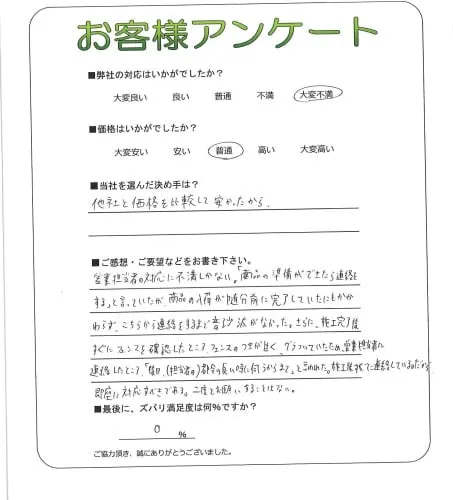 お客様アンケート
■弊社の対応はいかがでしたか？
大変良い 良い 普通 不満 大変不満
■価格はいかがでしたか？
大変安い 安い 普通 高い 大変高い
■当社を選んだ決め手は？
他社と価格を比較して安かったから。
■ご感想・ご要望などをお書き下さい。
営業担当者の対応に不満しかない。「商品の準備ができたら連絡を
する」と言っていたが、商品の準備が随分前に完了していたにもかか
わらず、こちらから連絡をするまで音沙汰がなかった。さらに、施工完了後
すぐにフェンスを確認したところ、フェンスのつけが甘く、グラついていたため、営業担当者に
連絡したところ、「後日、(担当者の)都合の良い時に伺うからまて」と言われた。施工後すぐに連絡しているのだから
即座に対応すべきである。二度とお願いすることはない。
■最後に、ズバリ満足度は何%ですか？
0 %
ご協力頂き、誠にありがとうございました。